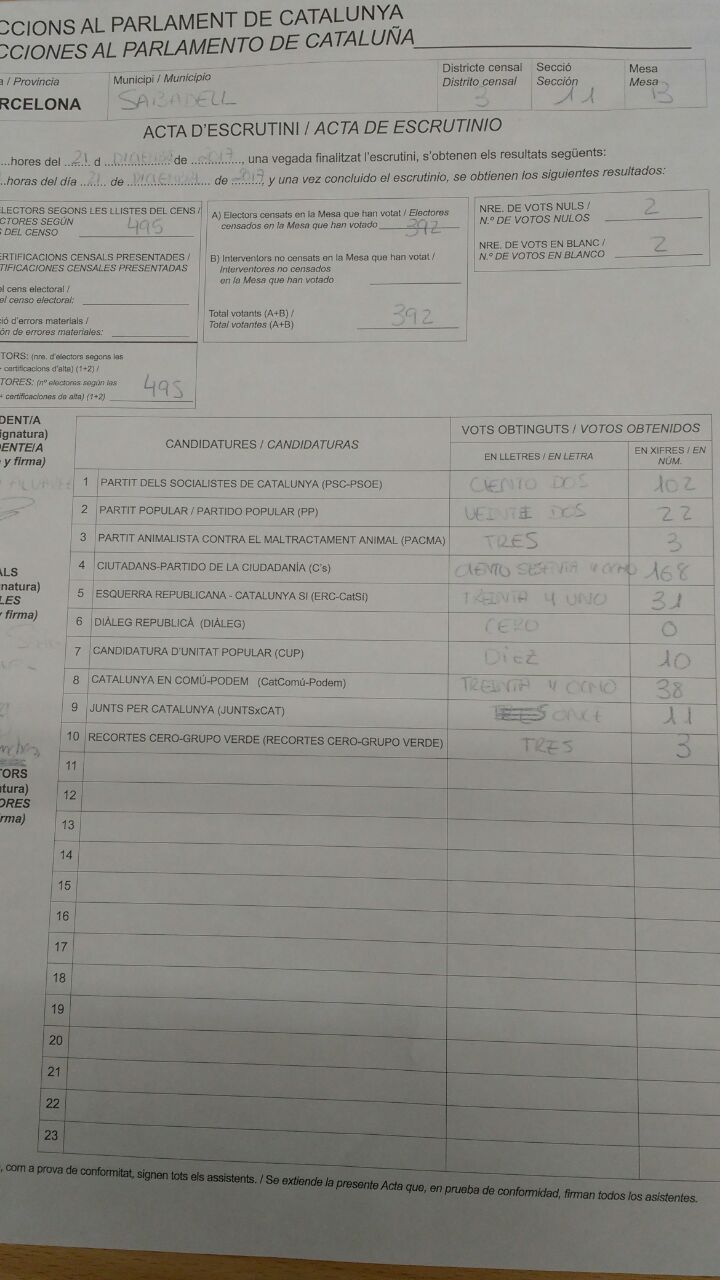 CCIONS AL PARLAMENT DE CATALUNYA
CCIONES AL PARLAMENTO DE CATALUÑA
a / Provincia
RCELONA
Municipi / Municipio
SABADELL
Districte censal
Distrito censal
3
Secció
Sección
11
Mesa
Mesa
B
ACTA D'ESCRUTINI / ACTA DE ESCRUTINIO
...hores del 21 d DICIEMBRE de 2017, una vegada finalitzat l'escrutini, s'obtenen els resultats següents:
.horas del día 21 de DICIEMBRE de 2017, y una vez concluido el escrutinio, se obtienen los siguientes resultados:
LECTORS SEGONS LES LLISTES DEL CENS /
CTORES SEGÚN
S DEL CENSO 495
ERTIFICACIONS CENSALS PRESENTADES /
TIFICACIONES CENSALES PRESENTADAS
el cens electoral /
el censo electoral:
ció d'errors materials /
ón de errores materiales:
TORS: (nre. d'electors segons les
+ certificacions d'alta) (1+2) /
TORES: (nº electores según las
+ certificaciones de alta) (1+2) 495
A) Electors censats en la Mesa que han votat / Electores
censados en la Mesa que han votado 392
B) Interventors no censats en la Mesa que han votat /
Interventores no censados
en la Mesa que han votado
Total votants (A+B) /
Total votantes (A+B) 392
NRE. DE VOTS NULS /
N.º DE VOTOS NULOS 2
NRE. DE VOTS EN BLANC /
N.º DE VOTOS EN BLANCO 2
DENT/A
ignatura)
DENTE/A
y firma)
ALS
natura)
LES
y firma)
TORS
tura)
ORES
rma)
CANDIDATURES / CANDIDATURAS
VOTS OBTINGUTS / VOTOS OBTENIDOS
EN LLETRES / EN LETRA
EN XIFRES / EN
NÚM.
1 PARTIT DELS SOCIALISTES DE CATALUNYA (PSC-PSOE) CIENTO DOS 102
2 PARTIT POPULAR / PARTIDO POPULAR (PP) VEINTE DOS 22
3 PARTIT ANIMALISTA CONTRA EL MALTRACTAMENT ANIMAL (PACMA) TRES 3
4 CIUTADANS-PARTIDO DE LA CIUDADANÍA (C's) CIENTO SESENTA Y OCHO 168
5 ESQUERRA REPUBLICANA - CATALUNYA SI (ERC-CatSí) TREINTA Y UNO 31
6 DIÀLEG REPUBLICÀ (DIÀLEG) CERO 0
7 CANDIDATURA D'UNITAT POPULAR (CUP) DIEZ 10
8 CATALUNYA EN COMÚ-PODEM (CatComú-Podem) TREINTA Y OCHO 38
9 JUNTS PER CATALUNYA (JUNTSxCAT) ONCE 11
10 RECORTES CERO-GRUPO VERDE (RECORTES CERO-GRUPO VERDE) TRES 3
11
12
13
14
15
16
17
18
19
20
21
22
23
, com a prova de conformitat, signen tots els assistents. / Se extiende la presente Acta que, en prueba de conformidad, firman todos los asistentes.